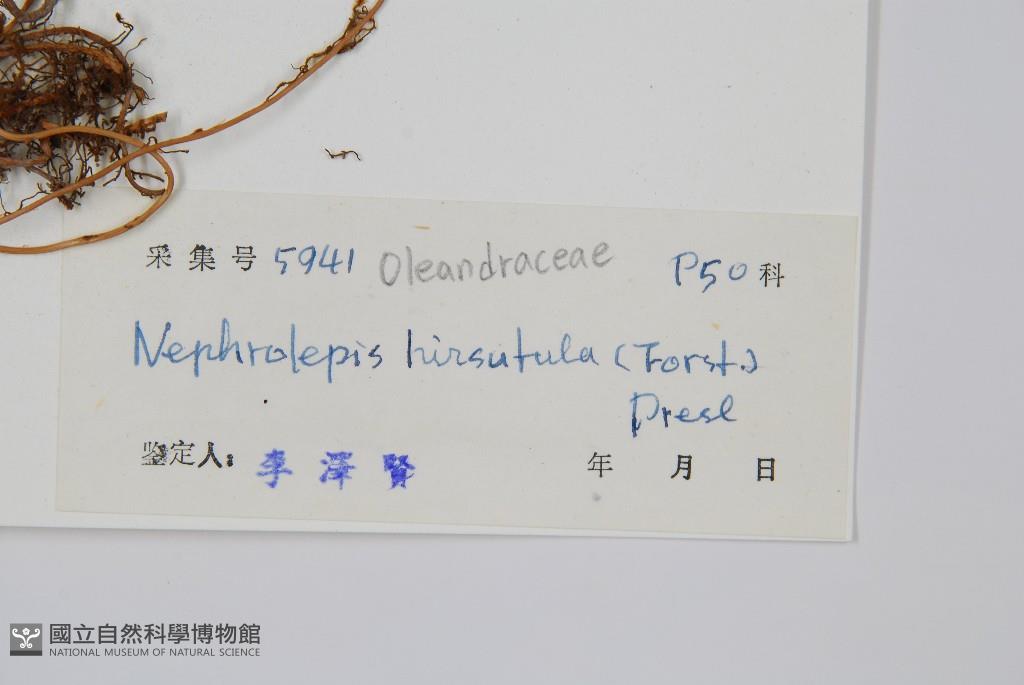 采集号 5941 Oleandraceae P50 科
Nephrolepis hirsutula (Forst.)
Presl
鉴定人: 李澤賢 年 月 日
國立自然科學博物館
NATIONAL MUSEUM OF NATURAL SCIENCE